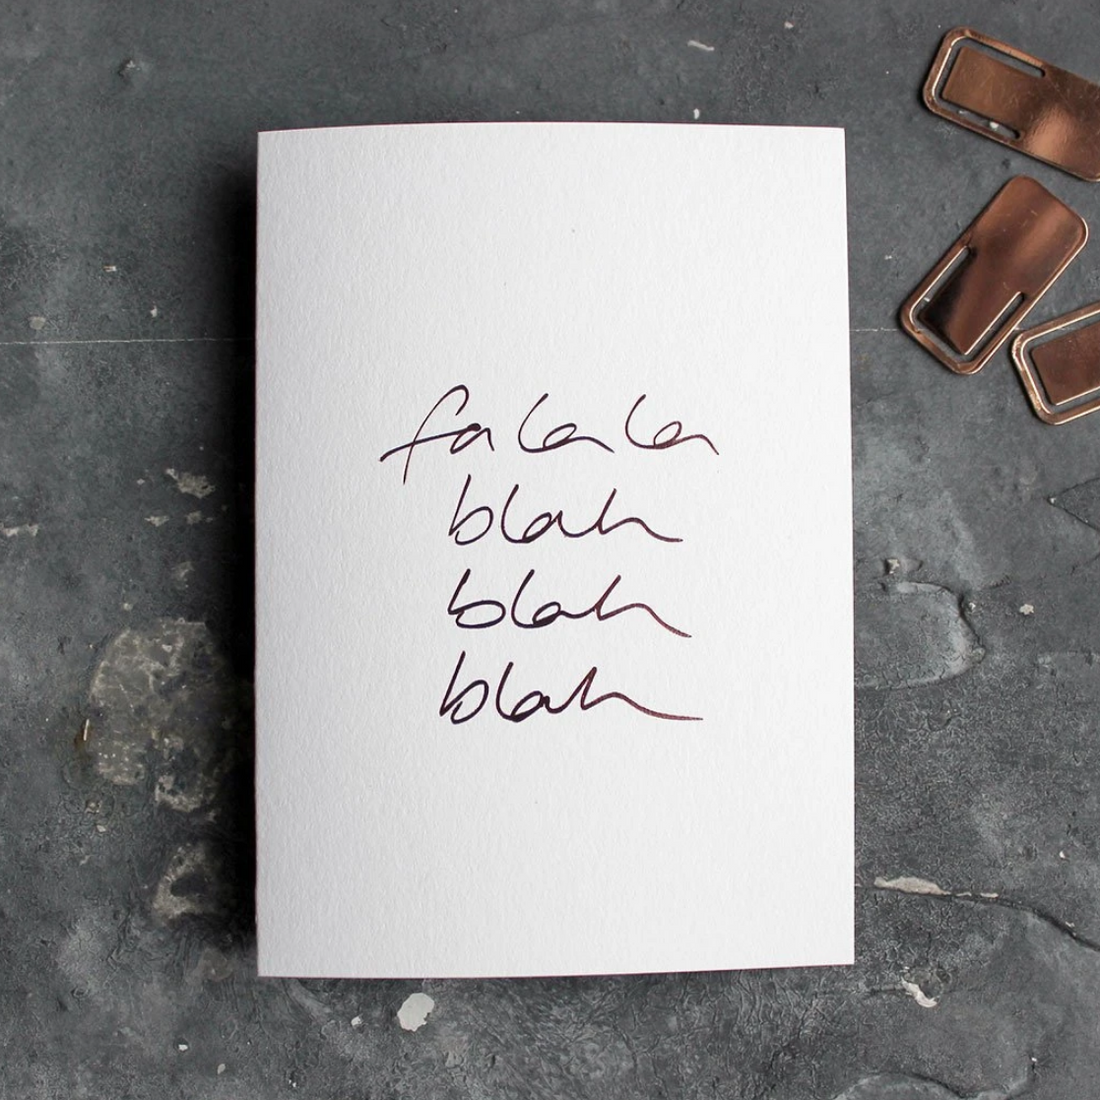 fa la la
blah
blah
blah